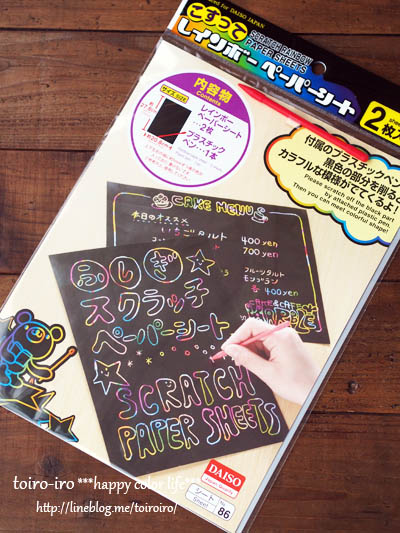 Designed for DAISO JAPAN
こすって
SCRATCH RAINBOW
PAPER SHEETS
レインボーペーパーシート
2枚入
内容物
Contents
サイズ size
レインボー
ペーパーシート
…2枚
プラスチック
ペン…1本
付属のプラスチックペンで
黒色の部分を削ると
カラフルな模様がでてくるよ!
Please scratch off the black part
by attached plastic pen,
Then you can meet colorful shape!
CAKE MENUS
本日のオススメ
いちごタルト
400yen
700yen
フルーツタルト
モンブラン
各 400yen
CAKE&CAFE
MARBLE
ふしぎ
スクラッチ
ペーパーシート
SCRATCH
PAPER SHEETS
DAISO
Japan Quality
シート
Sheet
No
86
toiro-iro ***happy color life**
http://lineblog.me/toiroiro/